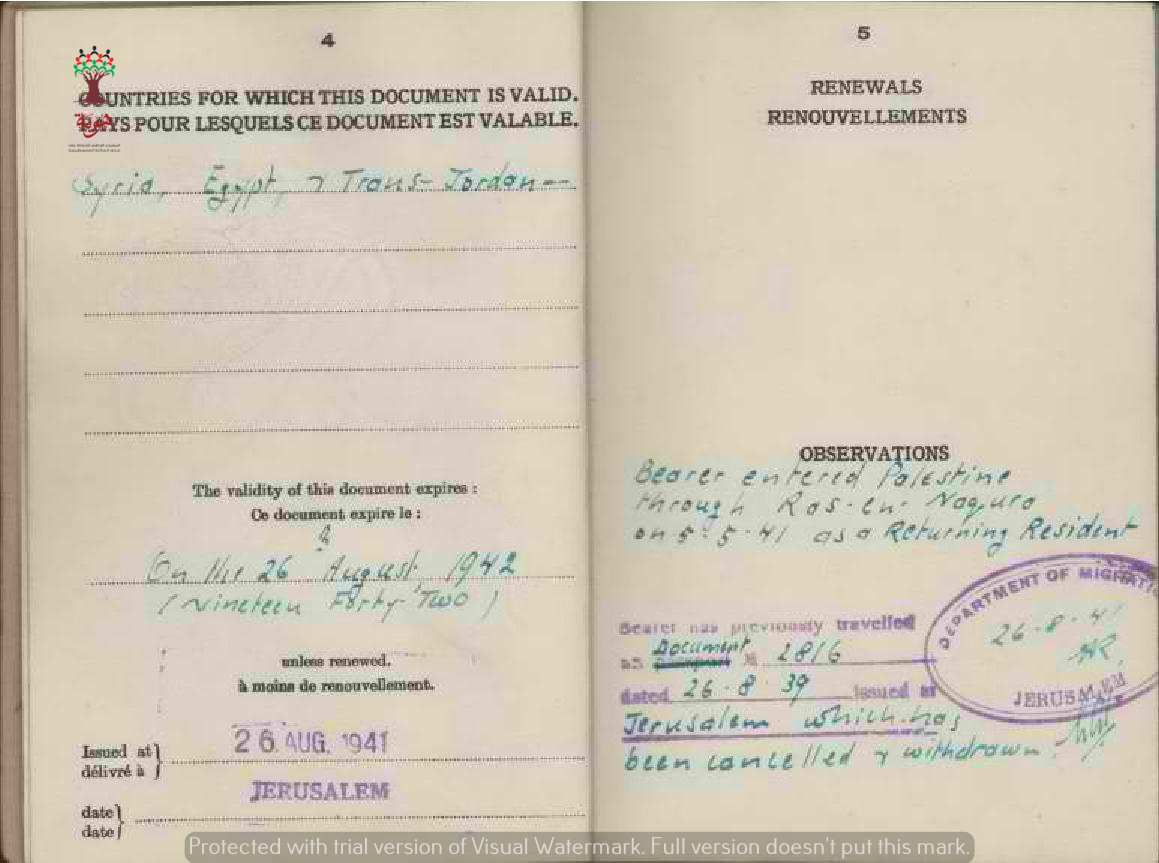 4
COUNTRIES FOR WHICH THIS DOCUMENT IS VALID.
PAYS POUR LESQUELS CE DOCUMENT EST VALABLE.
Syria, Egypt, & Trans-Jordan--
The validity of this document expires :
Ce document expire le :
On the 26 August 1942
(Nineteen Forty Two)
unless renewed.
à moins de renouvellement.
Issued at
délivré à
26 AUG. 1941
JERUSALEM
date
date
5
RENEWALS
RENOUVELLEMENTS
OBSERVATIONS
Bearer entered Palestine
through Ras-en-Naqura
on 5.5.41 as a Returning Resident
Bearer has previously travelled
on Document № 2816
dated 26.8.39 issued at
Jerusalem which has
been cancelled & withdrawn.
DEPARTMENT OF MIGRATIO
26-8-41
JERUSALEM
Protected with trial version of Visual Watermark. Full version doesn't put this mark.